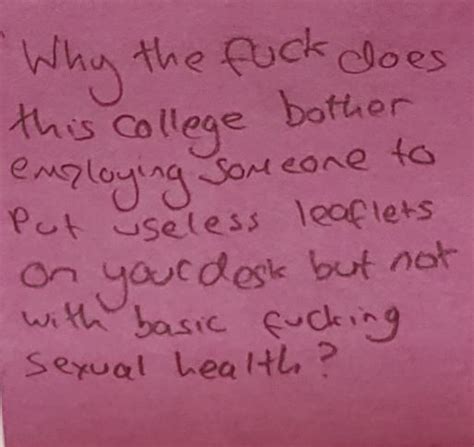 Why the fuck does
this college bother
employing someone to
Put useless leaflets
on your desk but not
with basic fucking
sexual health?